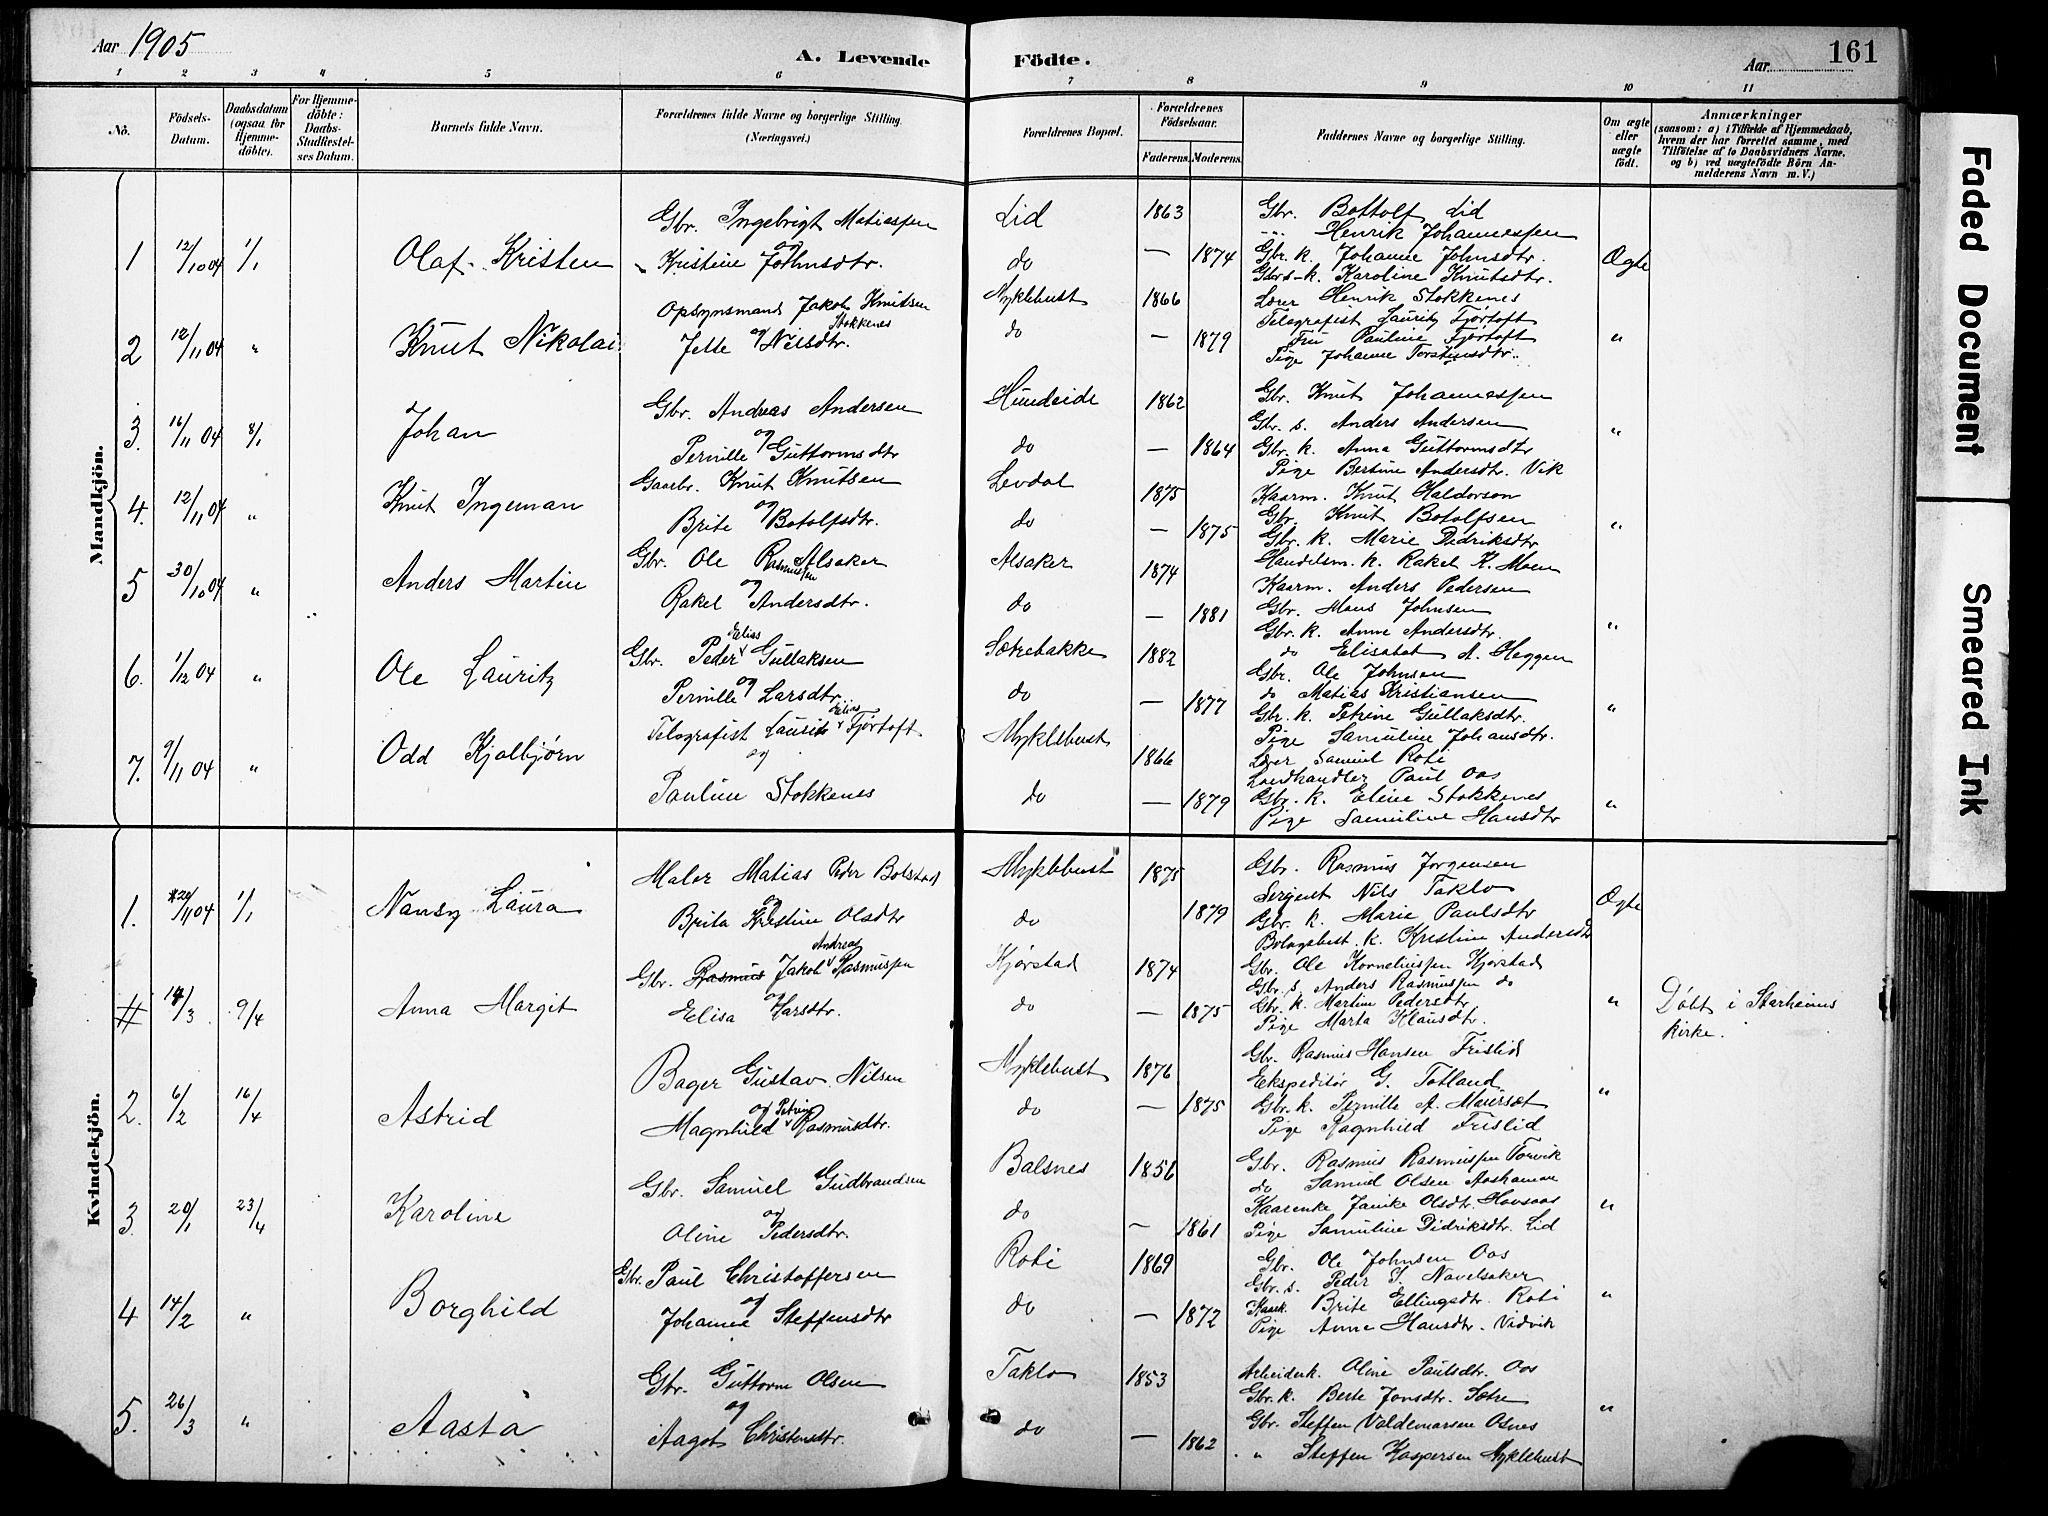 Aar 1905
A. Levende Födte.
Aar 161
1 2 3 4 5 6 7 8 9 10 11
No.
Födsels-Datum.
Daabsdatum (ogsaa for Hjemme-döbte).
For Hjemme-döbte: Daabs-Stadfæstel-ses Datum.
Barnets fulde Navn.
Forældrenes fulde Navne og borgerlige Stilling. (Næringsvei.)
Forældrenes Bopæl.
Forældrenes Födselsaar.
Faderens. Moderens.
Faddernes Navne og borgerlige Stilling.
Om ægte eller uægte födt.
Anmærkninger
(saasom: a) i Tilfælde af Hjemmedaab, hvem der har forrettet samme, med Tilföielse af to Daabsvidners Navne, og b) ved uægtefödte Börn An-melderens Navn m. V.)
Mandkjön.
1 12/10 04 1/1 Olaf Kristen
Gbr. Ingebrigt Matiessen
og
Kristine Johnsdtr.
Lid 1863
do — 1874
Gbr. Bottolf Lid
--- Henrik Johannessen
Gbr. k. Johanne Johnsdtr.
Gbrs-k. Karoline Knutsdtr.
Ægte
2 12/11 04 " Knut Nikolai
Opsynsmand Jakob Knutsen Stokkenes
Jette og Nilsdtr.
Myklebust 1866
do — 1879
Lærer Henrik Stokkenes
Telegrafist Lauritz Fjørtoft
Fru Pauline Fjørtoft
Pige Johanne Torsteinsdtr.
"
3. 16/11 04 8/1 Johan
Gbr. Andreas Andersen
og
Pernille Guttormsdtr
Hundeide 1862
do — 1864
Gbr. Knut Johannessen
Gbr. s. Anders Andersen
Gbr. k. Anna Guttormsdtr
Pige Bertine Andersdtr. Vik
"
4. 12/11 04 " Knut Ingeman
Gaarbr. Knut Knutsen
og
Brite Botolfsdtr.
Levdal 1875
do — 1875
Kaarm. Knut Haldorson
Gbr. Knut Botolfsen
Gbr. k. Marie Didriksdtr
Handelsm. k. Rakel K. Moen
"
5 30/10 04 " Anders Martin
Gbr. Ole Rasmussen Alsaker
og
Rakel Andersdtr.
Alsaker 1874
do — 1881
Kaarm. Anders Pedersen
Gbr. Mons Johnsen
Gbr. k. Anne Andersdtr.
do Elisabet A. Heggen
"
6. 1/12 04 " Ole Lauritz
Gbr. Peder Elias Gullaksen
og
Pernille Larsdtr.
Sætrebakke 1882
do — 1877
Gbr. Ole Johnsen
do Matias Kristiansen
Gbr. k. Petrine Gullaksdtr.
Pige Samuline Johansdtr.
"
7. 9/11 04 " Odd Kjolbjørn
Telegrafist Lauritz Elias Fjørtoft
og
Pauline Stokkenes
Myklebust 1866
do — 1879
Lærer Samuel Roti
Landhandler Paul Oos
Gbr. k. Eline Stokkenes
Pige Samuline Hansdtr
"
Kvindekjön.
1. 20/11 04 1/1 Nansy Laura
Maler Matias Peder Bolstad
og
Brita Kristine Olsdtr
Myklebust 1875
do 1879
Gbr. Rasmus Jorgensen
Sergent Nils Taklo
Gbr. k. Marie Paulsdtr
Bolagsbest. k. Kristine Andersdtr
Ægte
# 14/3 9/4 Anna Margit
Gbr. Rasmus Jakob Andreas Rasmussen
og
Elisa Larsdtr.
Kjørstad 1874
do — 1875
Gbr. Ole Korneliussen Kjørstad
Gbr. s. Anders Rasmussen do
Gbr. k. Martine Pedersdtr
Pige Marta Klausdtr.
"
Døbt i Starheims kirke.
2. 6/2 16/4 Astrid
Bager Gustav Nilsen
og
Magnhild Petrine Rasmusdtr.
Myklebust 1876
do — 1875
Gbr. Rasmus Hansen Frislid
Ekspeditør G. Totland
Gbr. k. Pernille A. Maurset
Pige Ragnhild Frislid
"
3 20/1 23/4 Karoline
Gbr. Samuel Gudbrandsen
og
Oline Pedersdtr.
Balsnes 1856
do — 1861
Gbr. Rasmus Rasmussen Torvik
do Samuel Olsen Aashamar
Kaarenke Janike Olsdtr. Hovsaas
Pige Samuline Didriksdtr. Lid
"
4 14/2 " Borghild
Gbr. Paul Christoffersen
og
Johanne Steffensdtr
Roti 1869
do — 1872
Gbr. Ole Johnsen Oos
Gbr. s. Peder S. Navelsaker
Kaark. Brite Ellingsdtr. Roti
Pige Anne Hansdtr. Vidvik
"
5. 26/3 " Aasta
Gbr. Guttorm Olsen
og
Aagot Christensdtr.
Taklo 1853
do — 1862
Arbeiderk. Oline Paulsdtr. Oos
Gbr. k. Berte Jonsdtr. Sætre
Gbr. Steffen Valdemarsen Osnes
" Steffen Kaspersen Myklebust
"
Faded Document
Smeared Ink